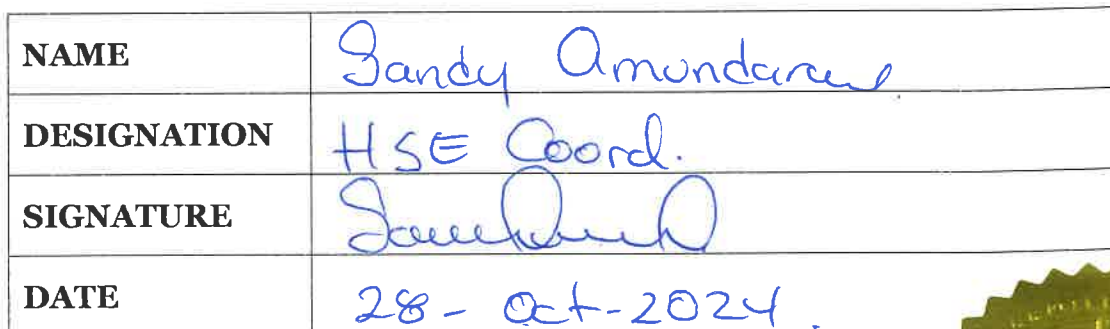 NAME Sandy Amundaray
DESIGNATION HSE Coord.
SIGNATURE
DATE 28-Oct-2024.